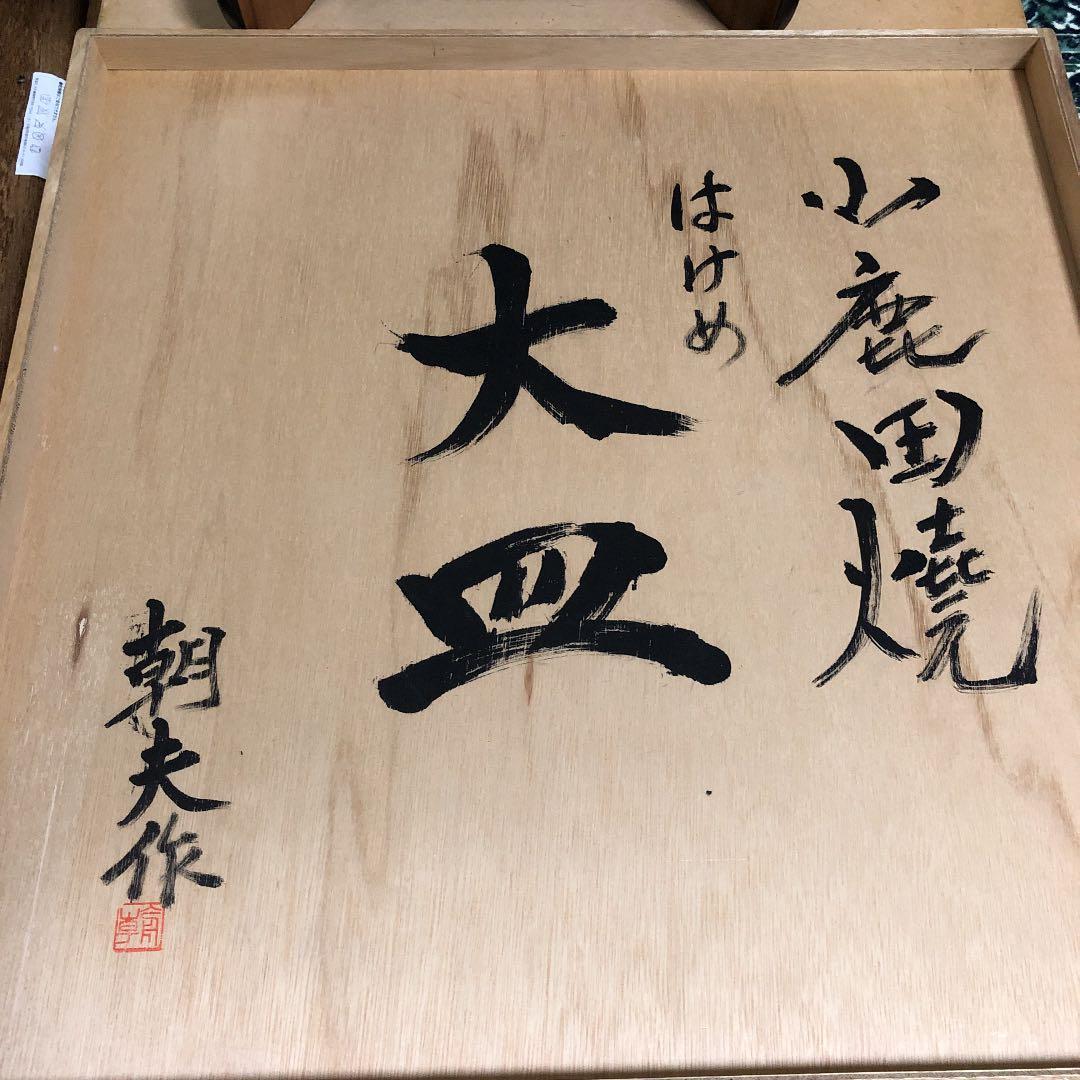 小鹿田燒
はけめ
大皿
朝夫作